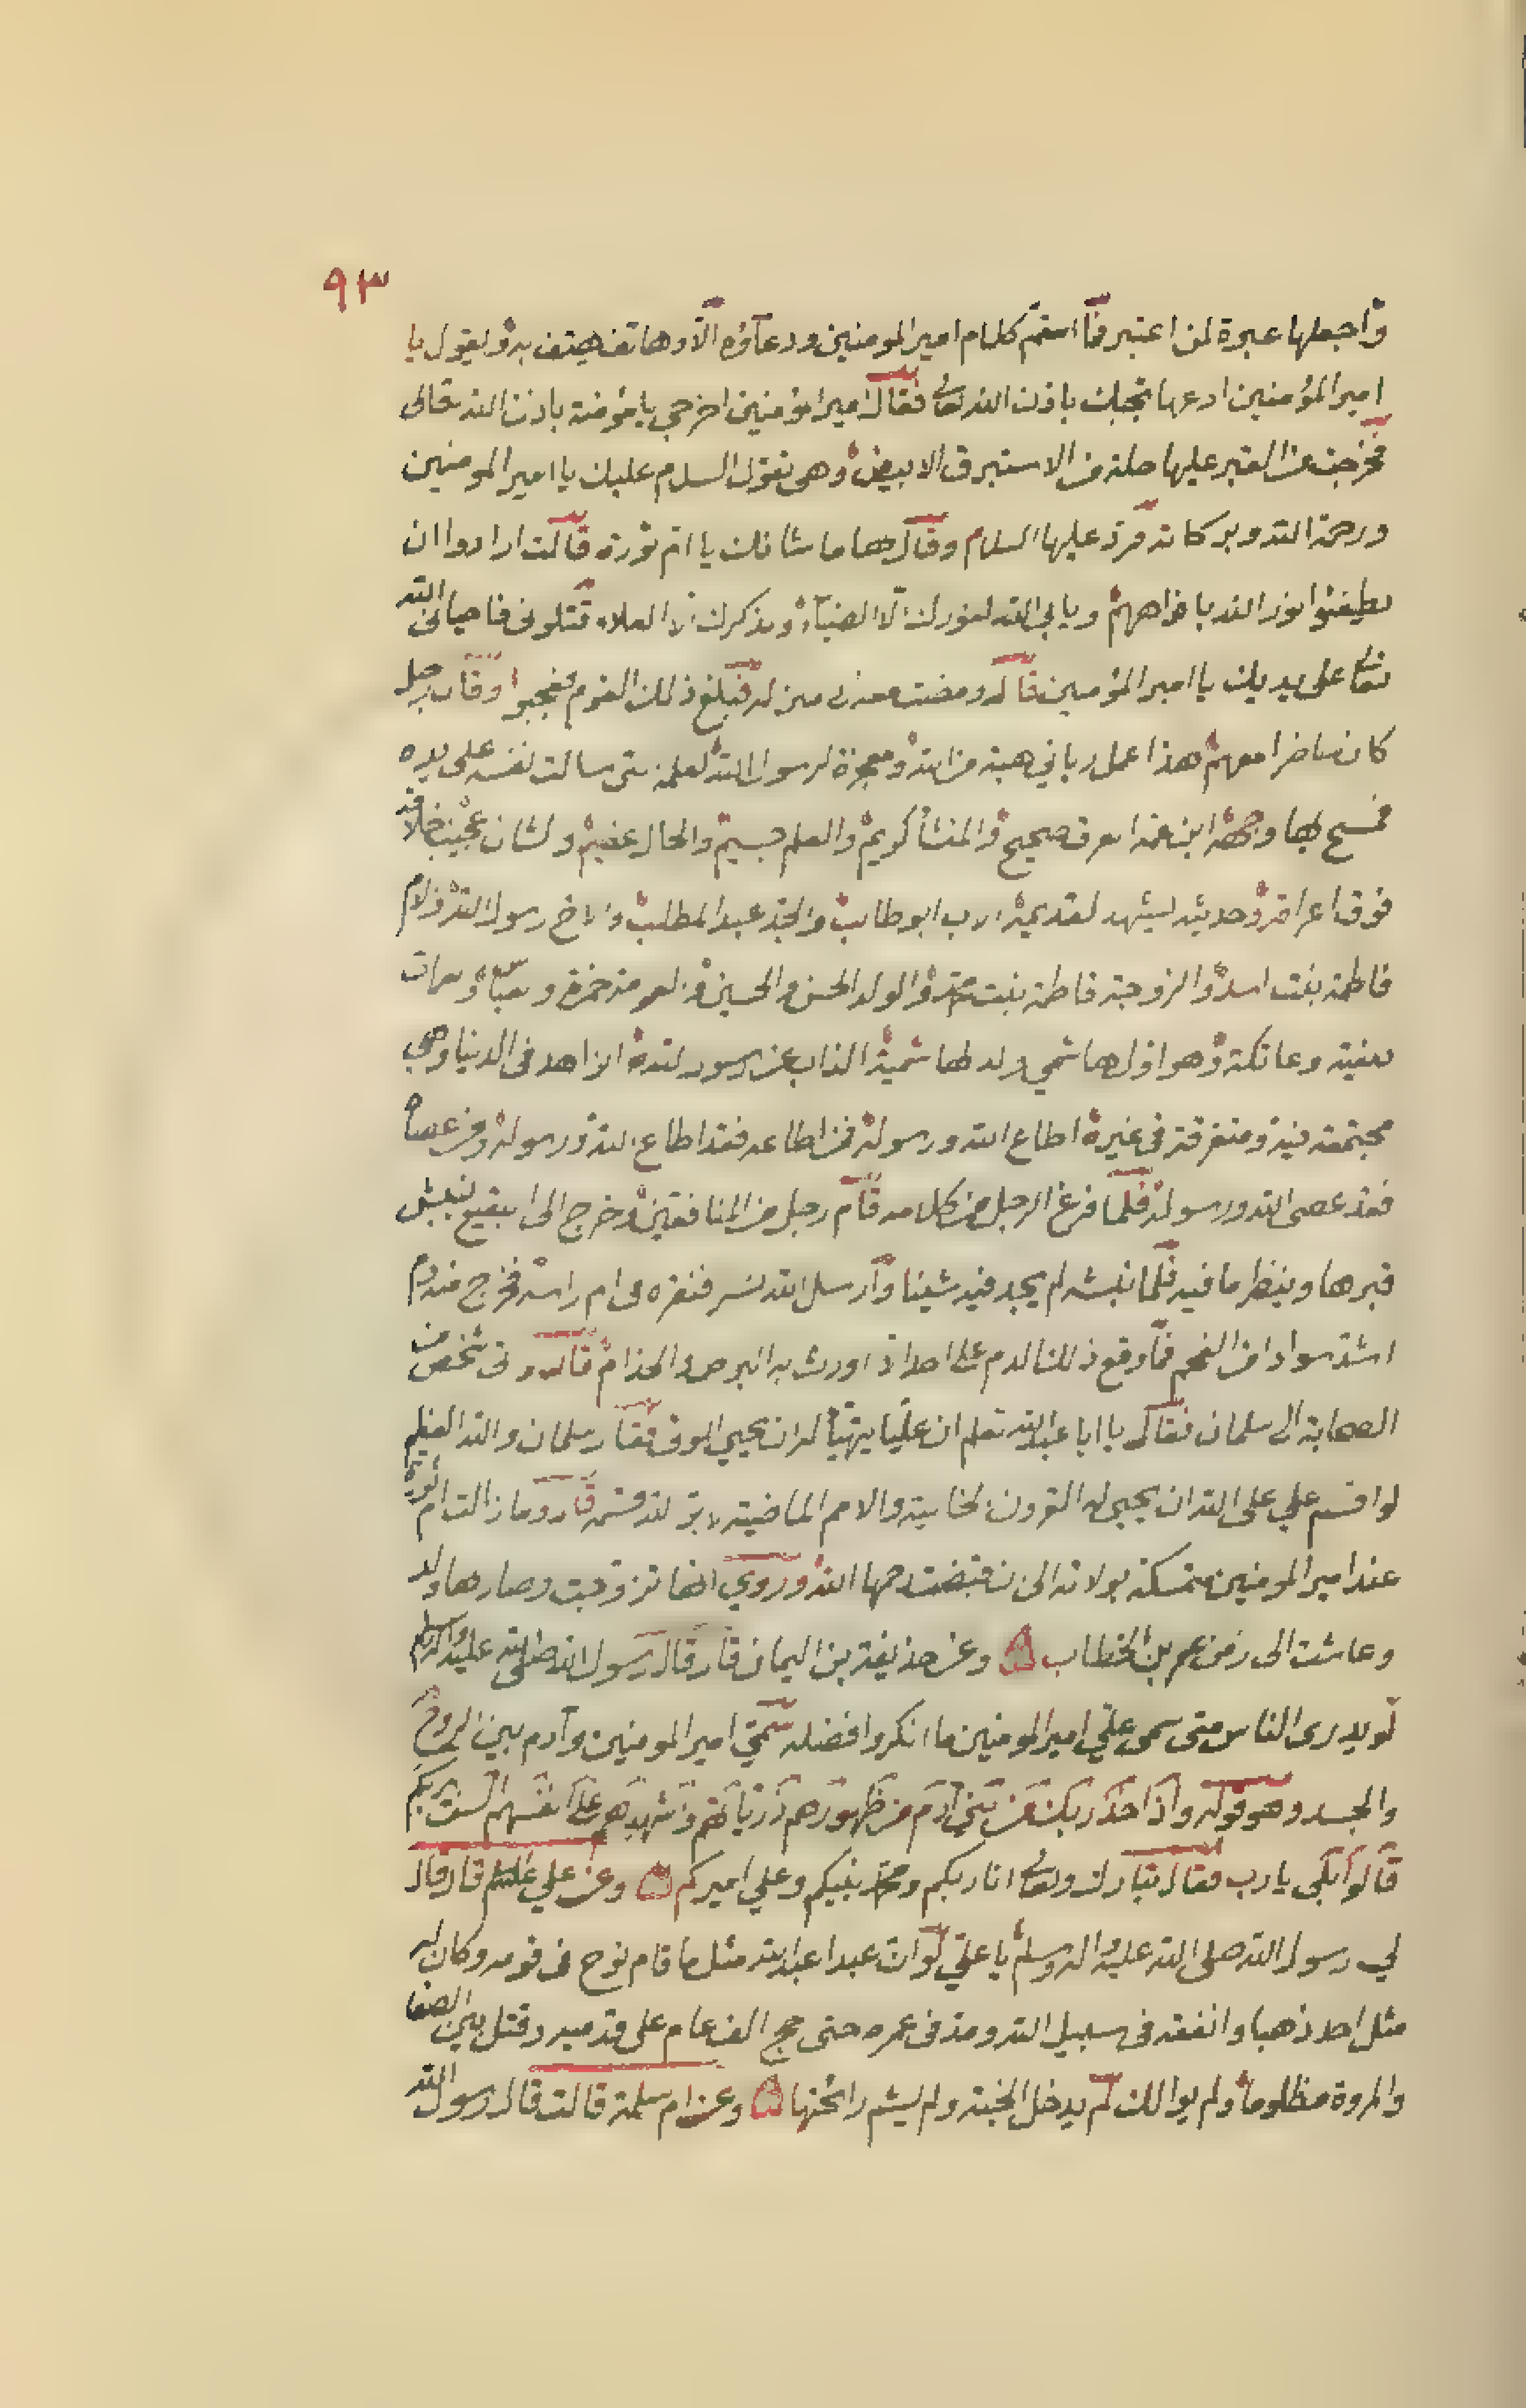 ٩٣
واجعلها عبرة لمن اعتبر فما استتم كلام امير المومنين ودعاؤه الا وهاتف يهتف به ويقول يا
امير المؤمنين ادعها تجبك باذن الله تعالى فقال امير المؤمنين اخرجي يا مؤمنة باذن الله تعالى
فخرجت من القبر عليها حلة من الاستبرق الابيض وهي تقول السلام عليك يا امير المومنين
ورحمة الله وبركاته فرد عليها السلام وقال لها ما شانك يا ام فروة قالت ارادوا ان
يطفئوا نور الله بافواههم ويابى الله لنورك الا الضياء وبذكرك الا العلاء قتلوني فاحياني الله
تعالى على يديك يا امير المؤمنين قال ومضت معه الى منزله فبلغ ذلك القوم فعجبوا وقال رجل
كان حاضرا معهم هذا عمل رباني هبة من الله ومعجزة لرسول الله لعلمه متى سالت نفسه على يده
فمسح بها وجهه ابن عمه العرق صحيح والمنشأ كريم والعلم جسيم والحال عظيم والشان عجيب
فوق اعراقه وحديثه يشهد لقديمه الاب ابو طالب والجد عبد المطلب والاخ رسول الله والام
فاطمة بنت اسد والزوجة فاطمة بنت محمد والولد الحسن والحسين والعمومة حمزة و والعمات
صفية وعاتكة وهو اول هاشمي ولد لهاشمية الذاب عن رسول الله الزاهد في الدنيا وهي
مجتمعة فيه ومتفرقة في غيره اطاع الله ورسوله فمن اطاعه فقد اطاع الله ورسوله ومن عصاه
فقد عصى الله ورسوله فلما فرغ الرجل من كلامه قام رجل من المنافقين وخرج الى البقيع لينبش
قبرها وينظر ما فيه فلما نبشه لم يجد فيه شيئا وارسل الله نسر فنقره في ام راسه فخرج منه دم
اشد سوادا من الفحم فما وقع ذلك الدم على احد الا اورث به البرص والجذام قال وتى شخص من
الصحابة الى سلمان فقال يا ابا عبدالله تعلم ان عليا يتهيأ له ان يحيي الموتى فقال سلمان والله العظيم
لو اقسم علي على الله ان يحيي له القرون الخالية والامم الماضية لابر الله قسمه قال وما زالت ام فروة
عند امير المومنين متمسكة بولاته الى ان قبضت رحمها الله وروي انها تزوجت وصار لها ولد
وعاشت الى زمن عمر بن الخطاب وعن حذيفة بن اليمان قال قال رسول الله صلى الله عليه وآله وسلم
لو يدري الناس متى سمى علي امير المومنين ما انكروا فضله سمي امير المومنين وآدم بين الروح
والجسد وهو قوله واذا اخذ ربك من بني ادم من ظهورهم ذرياتهم واشهدهم على انفسهم الست بربكم
قالوا بلى يا رب فقال تبارك وتعالى انا ربكم ومحمد نبيكم وعلي اميركم وعن علي عليه السلم قال قال
لي رسول الله صلى الله عليه واله وسلم يا علي لو ان عبدا عبد الله مثل ما قام نوح في قومه وكان له
مثل احد ذهبا وانفقه في سبيل الله ومد في عمره حتى حج الف عام على قدميه وقتل بين الصفا
والمروة مظلوما ولم يوالك لم يدخل الجنة ولم يشم رائحتها وعن ام سلمة قالت قال رسول الله